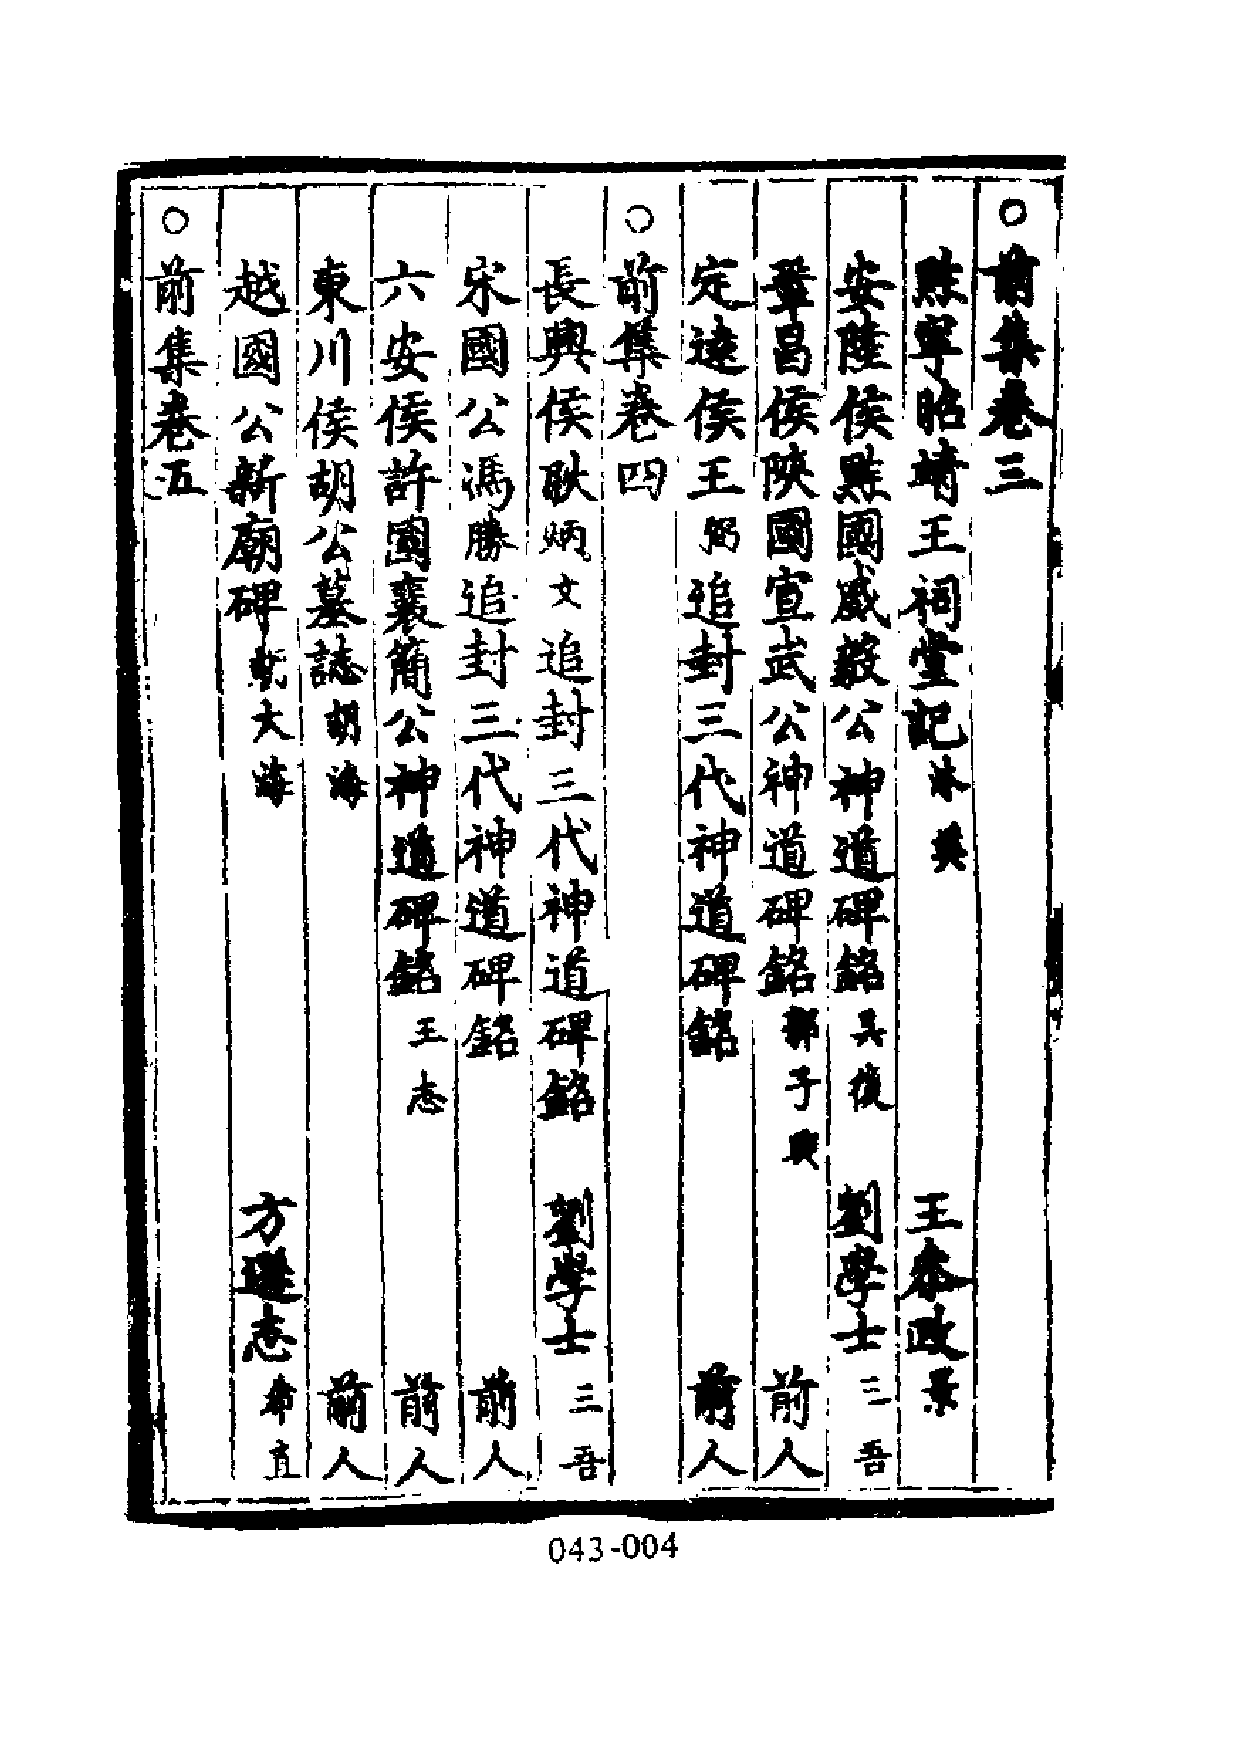 ○前集卷三
黔寧昭靖王祠堂記 沐英 王叅政景
安陸侯黔國威毅公神道碑銘 吳復 劉學士三吾
鞏昌侯陝國宣武公神道碑銘 郭子興 前人
定遠侯王弼追封三代神道碑銘 前人
○前集卷四
長興侯耿炳文追封三代神道碑銘 劉學士三吾
宋國公馮勝追封三代神道碑銘 前人
六安侯許國襄簡公神道碑銘 王志 前人
東川侯胡公墓誌 胡海 前人
越國公新廟碑 大海 方遜志希直
○前集卷五
043-004